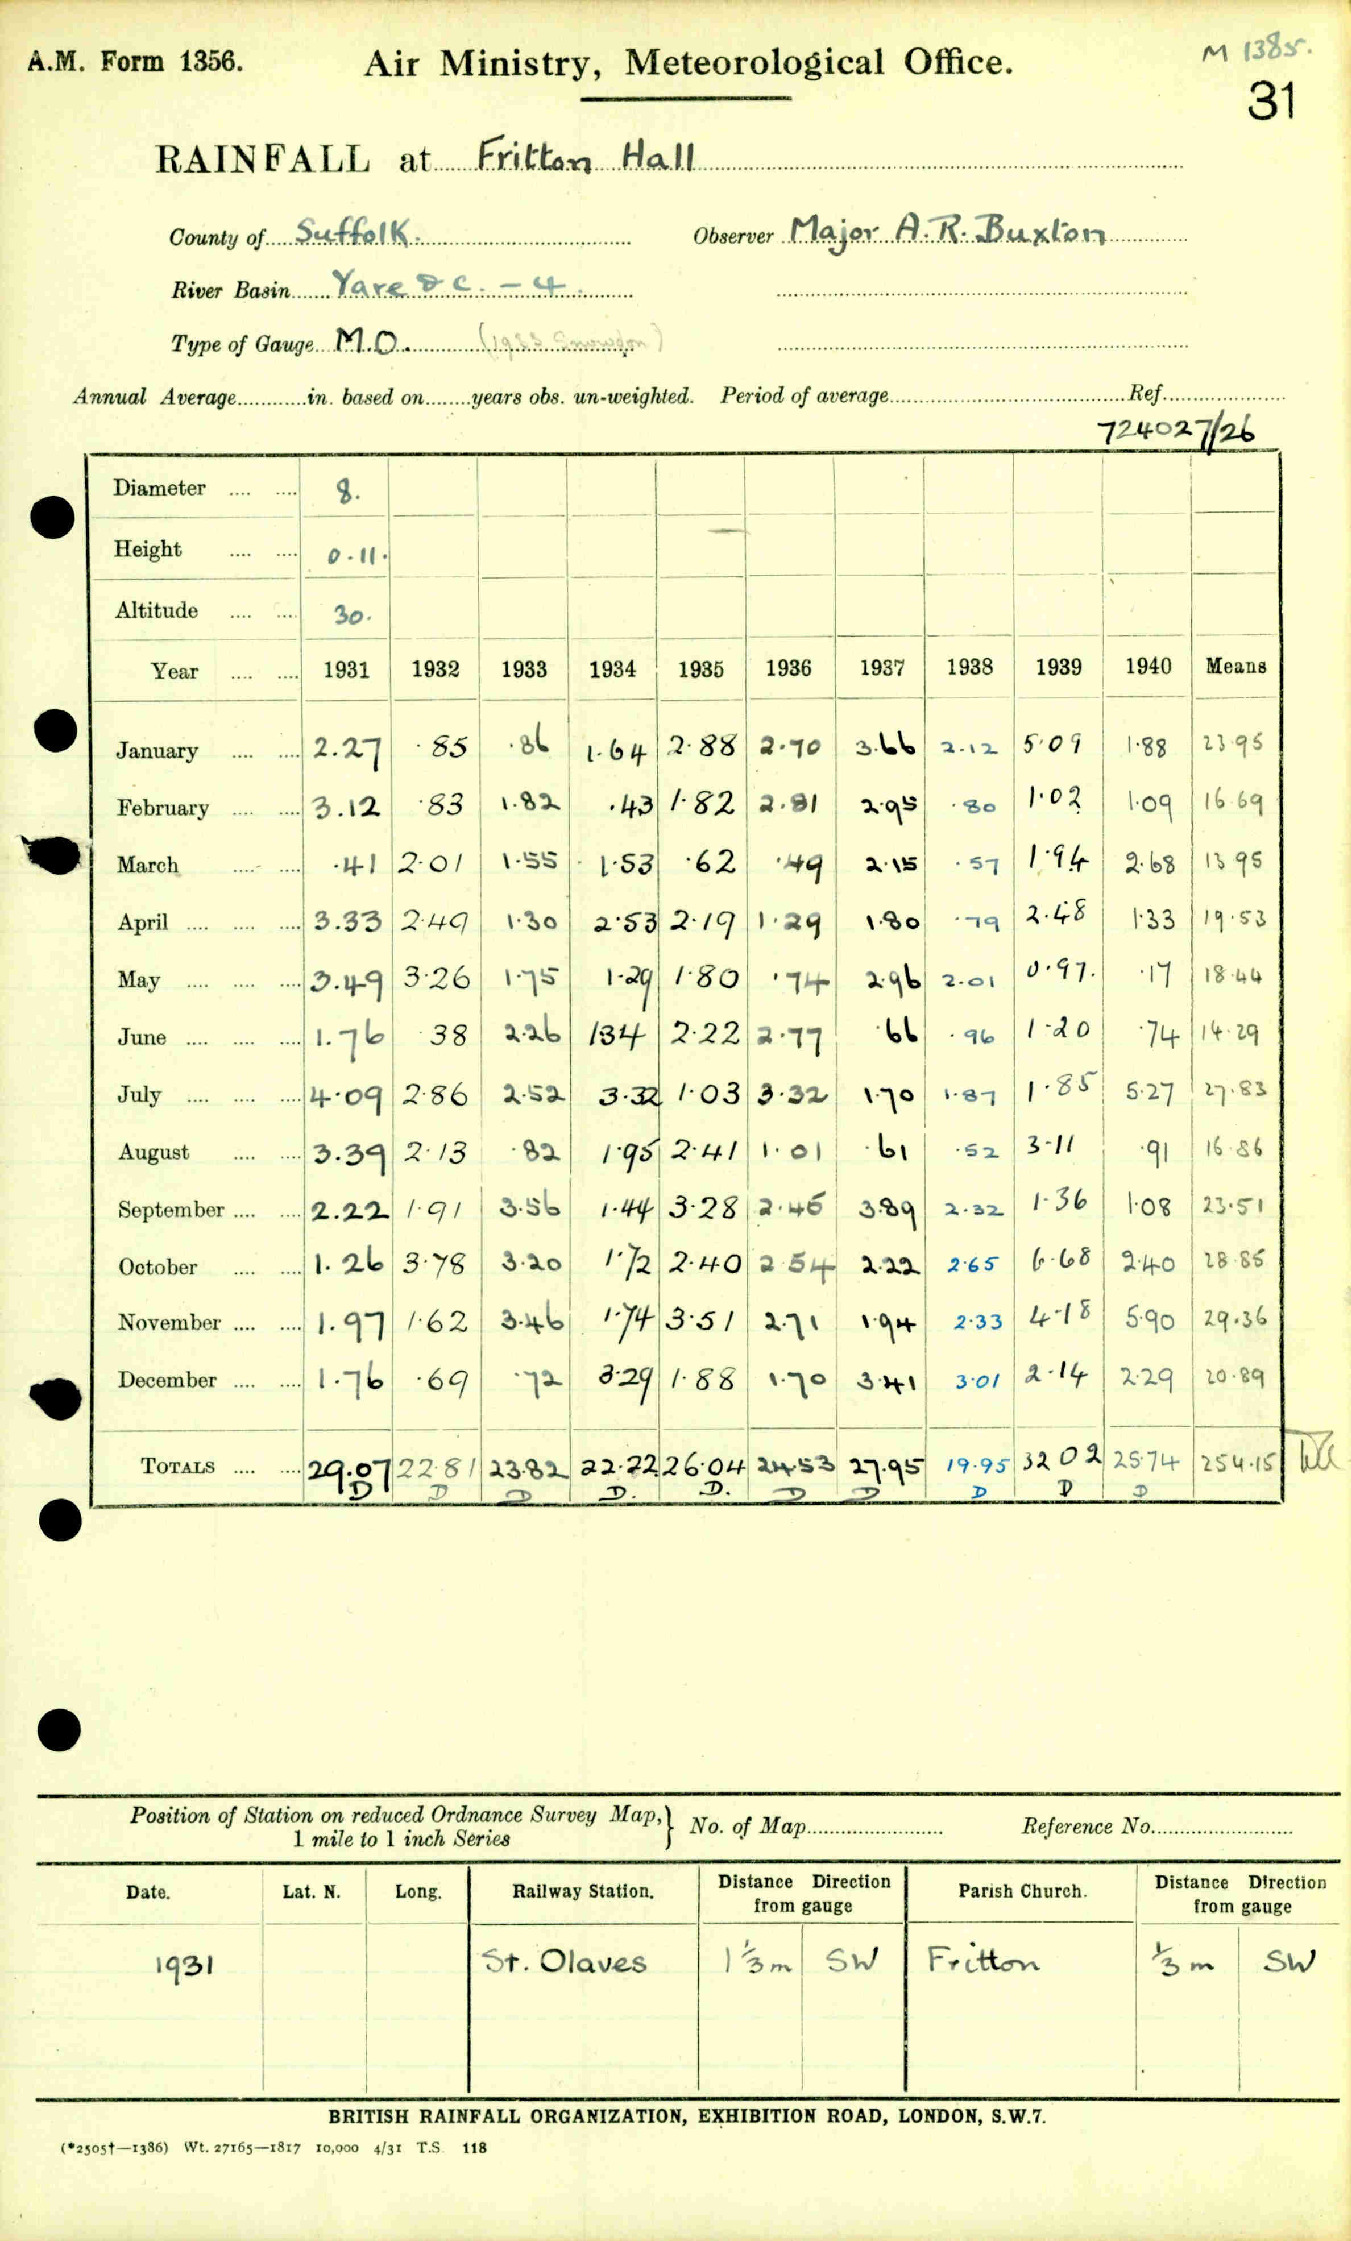 A.M. Form 1356. Air Ministry, Meteorological Office. M 1385.
31
RAINFALL at Fritton Hall
County of Suffolk. Observer Major A. R. Buxton
River Basin Yare &c. - 4.
Type of Gauge M.O. (1933 Snowdon)
Annual Average in. based on years obs. un-weighted. Period of average Ref.
724027/26
Diameter 8.
Height 0.11.
Altitude 30.
Year 1931 1932 1933 1934 1935 1936 1937 1938 1939 1940 Means
January 2.27 .85 .86 1.64 2.88 2.70 3.66 2.12 5.09 1.88 23.95
February 3.12 .83 1.82 .43 1.82 2.81 2.95 .80 1.02 1.09 16.69
March .41 2.01 1.55 1.53 .62 .49 2.15 .57 1.94 2.68 13.95
April 3.33 2.49 1.30 2.53 2.19 1.29 1.80 .79 2.48 1.33 19.53
May 3.49 3.26 1.75 1.29 1.80 .74 2.96 2.01 0.97. .17 18.44
June 1.76 .38 2.26 1.34 2.22 2.77 .66 .96 1.20 .74 14.29
July 4.09 2.86 2.52 3.32 1.03 3.32 1.70 1.87 1.85 5.27 27.83
August 3.39 2.13 .82 1.95 2.41 1.01 .61 .52 3.11 .91 16.86
September 2.22 1.91 3.56 1.44 3.28 2.45 3.89 2.32 1.36 1.08 23.51
October 1.26 3.78 3.20 1.72 2.40 2.54 2.22 2.65 6.68 2.40 28.85
November 1.97 1.62 3.46 1.74 3.51 2.71 1.94 2.33 4.18 5.90 29.36
December 1.76 .69 .72 3.29 1.88 1.70 3.41 3.01 2.14 2.29 20.89
TOTALS 29.07 22.81 23.82 22.22 26.04 24.53 27.95 19.95 32.02 25.74 254.15
D D D D. D. D D D D D
Position of Station on reduced Ordnance Survey Map, No. of Map Reference No.
1 mile to 1 inch Series
Date. Lat. N. Long. Railway Station. Distance Direction from gauge Parish Church. Distance Direction from gauge
1931 St. Olaves 1 1/3 m SW Fritton 1/3 m SW
BRITISH RAINFALL ORGANIZATION, EXHIBITION ROAD, LONDON, S.W.7.
(*2505†—1386) Wt. 27165—1817 10,000 4/31 T.S. 118